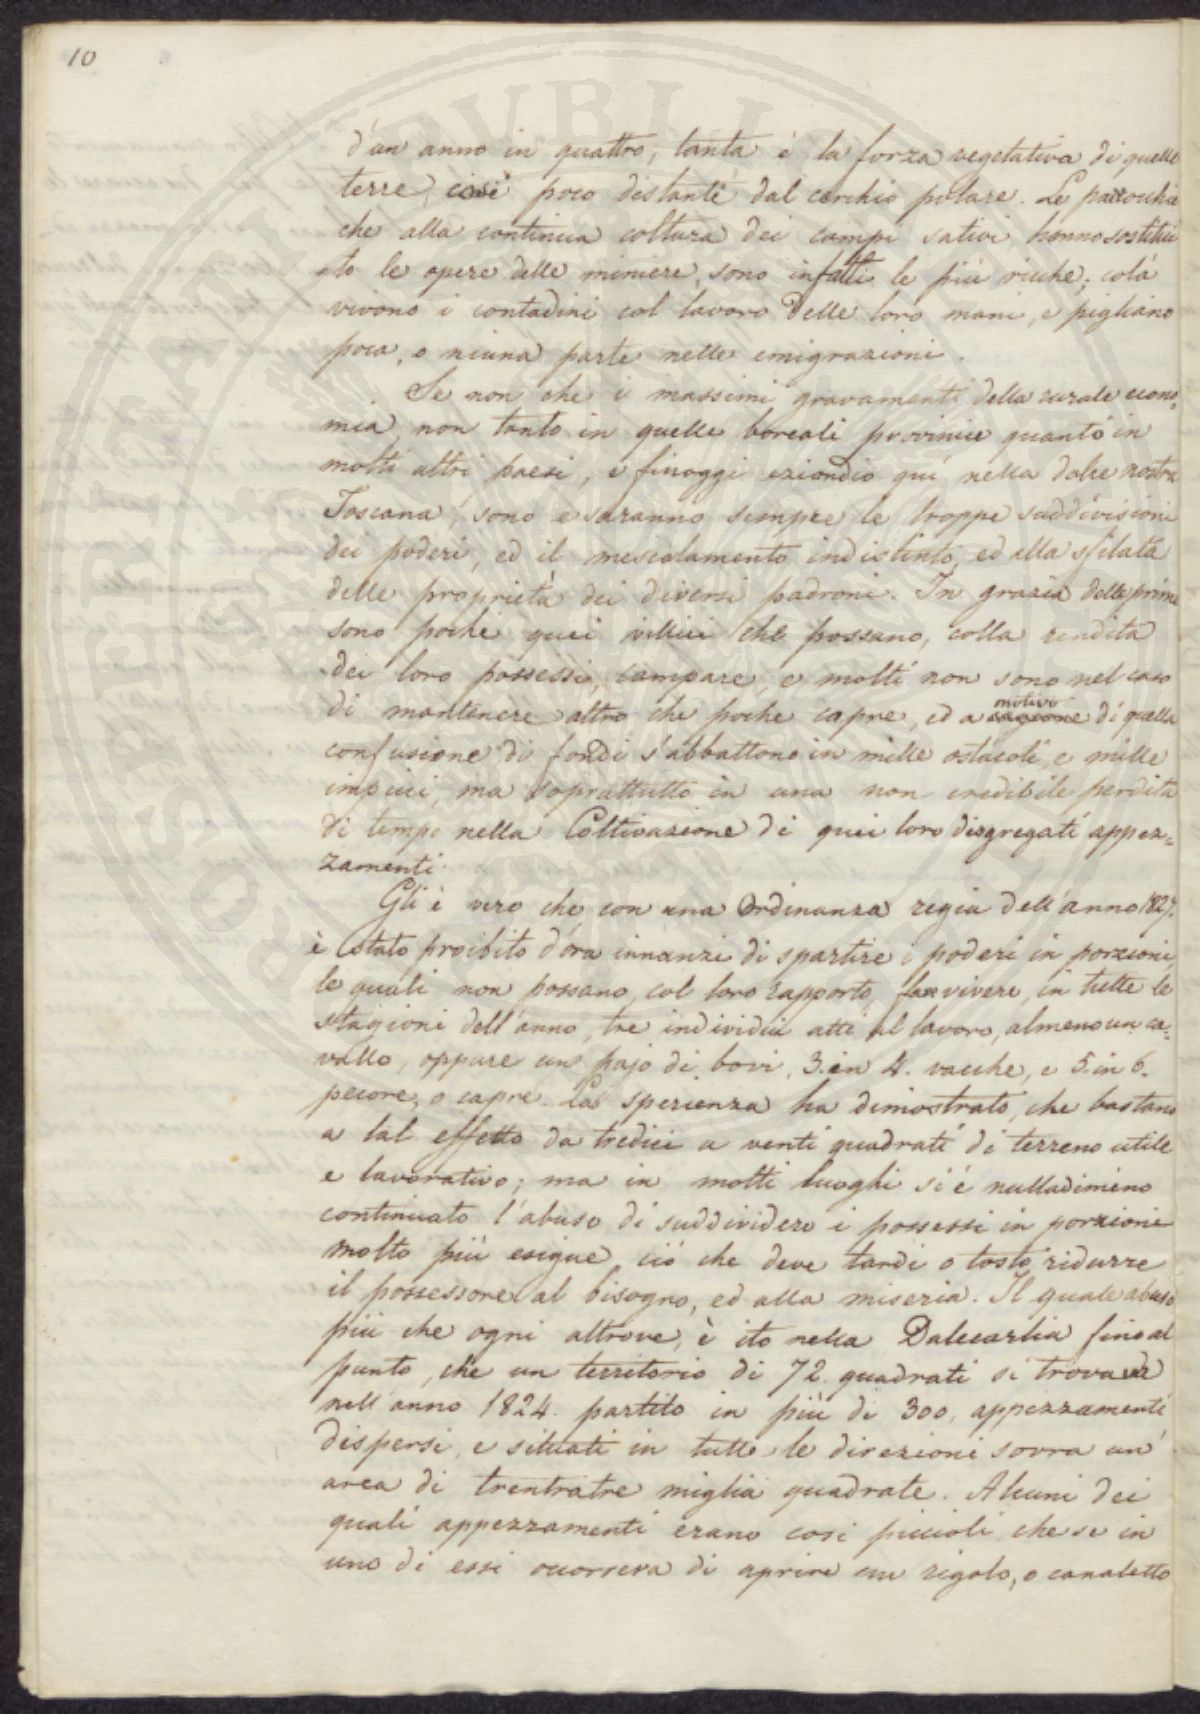 10
d'un anno in quattro, tanta è la forza vegetativa di quelle
terre così poco distanti dal cerchio polare. Le parrocchie
che alla continua coltura dei campi sativi hanno sostitui
to le opere delle miniere, sono infatti le più ricche; colà
vivono i contadini col lavoro delle loro mani, e pigliano
poca, o niuna parte nelle emigrazioni.
Se non che i massimi gravamenti della rurale econo-
mia, non tanto in quelle boreali provincie quanto in
molti altri paesi, e finoggi eziondio quì nella dolce nostra
Toscana, sono e saranno sempre le troppe suddivisioni
dei poderi, ed il mescolamento indistinto, ed alla sfilata
delle proprietà dei diversi padroni. In grazia delle prime
sono pochi quei villici che possano, colla rendita
dei loro possessi, campare, e molti non sono nel caso
di mantenere altro che poche capre, ed a cagione di quella
motivo
confusione di fondi s'abbattono in mille ostacoli, e mille
impicci, ma soprattutto in una non credibile perdita
di tempo nella Coltivazione di quei loro disgregati appez=
zamenti.
Gli è vero che con una Ordinanza regia dell'anno 1827.
è stato proibito d'ora innanzi di spartire i poderi in porzioni,
le quali non possano, col loro rapporto, far vivere, in tutte le
stagioni dell'anno, tre individui atti al lavoro, almeno un ca=
vallo, oppure un pajo di bovi, 3. in 4. vacche, e 5. in 6.
pecore, o capre. La sperienza ha dimostrato, che bastano
a tal effetto da tredici a venti quadrati di terreno utile
e lavorativo; ma in molti luoghi si è nulladimeno
continuato l'abuso di suddividere i possessi in porzioni
molto più esigue, ciò che deve tardi o tosto ridurre
il possessore al bisogno, ed alla miseria. Il quale abuso
più che ogni altrove, è ito nella Dalecarlia fino al
punto, che un territorio di 72. quadrati si trovava
nell'anno 1824. partito in più di 300. appezzamenti
dispersi, e situati in tutte le direzioni sovra un'
area di trentratre miglia quadrate. Alcuni dei
quali appezzamenti erano così piccioli, che se in
uno di essi occorreva di aprire un rigolo, o canaletto